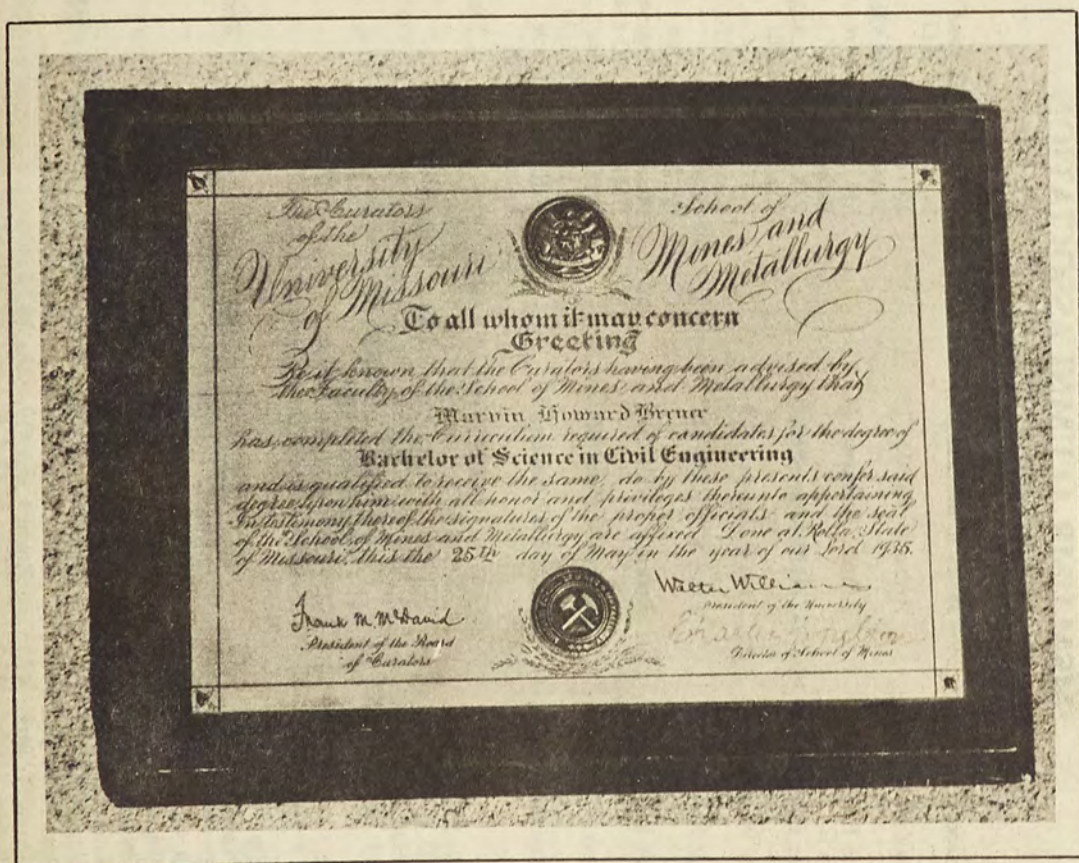 The Curators
of the
University
of Missouri
School of
Mines and
Metallurgy
To all whom it may concern
Greeting
Be it known that the Curators having been advised by
the Faculty of the School of Mines and Metallurgy that
Marvin Howard
has completed the Curriculum required of candidates for the degree of
Bachelor of Science in Civil Engineering
and is qualified to receive the same, do by these presents confer said
degree upon him with all honor and privileges thereunto appertaining
In testimony thereof the signatures of the proper officials and the seal
of the School of Mines and Metallurgy are affixed Done at Rolla, State
of Missouri, this the 25th day of May in the year of our Lord 1935.
Frank M. McDavid
President of the Board
of Curators
Walter Williams
President of the University
Charles
Director of School of Mines